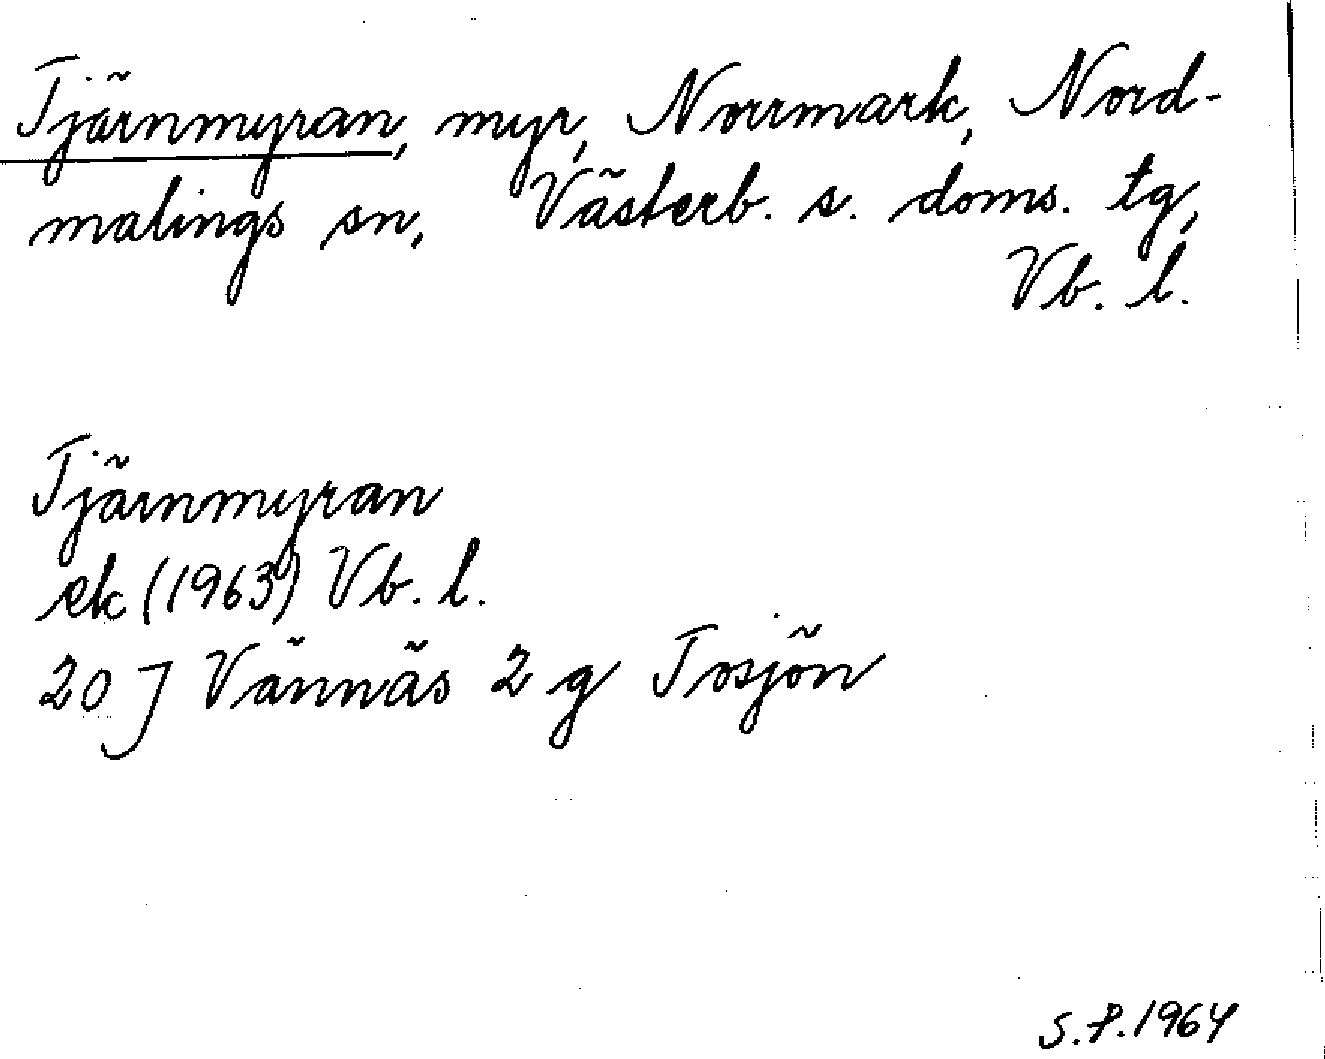 Tjärnmyran, myr, Norrmark, Nord-
malings sn, Västerb. s. doms. tg,
Vb. l.
Tjärnmyran
ek (1963) Vb. l.
20 J Vännäs 2 g Tosjön
S.P.1964